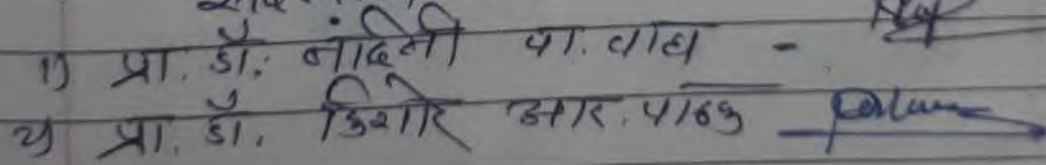 १) प्रा. डॉ. नंदिनी पा. वाघ -
२) प्रा. डॉ. किशोर आर. पाठक